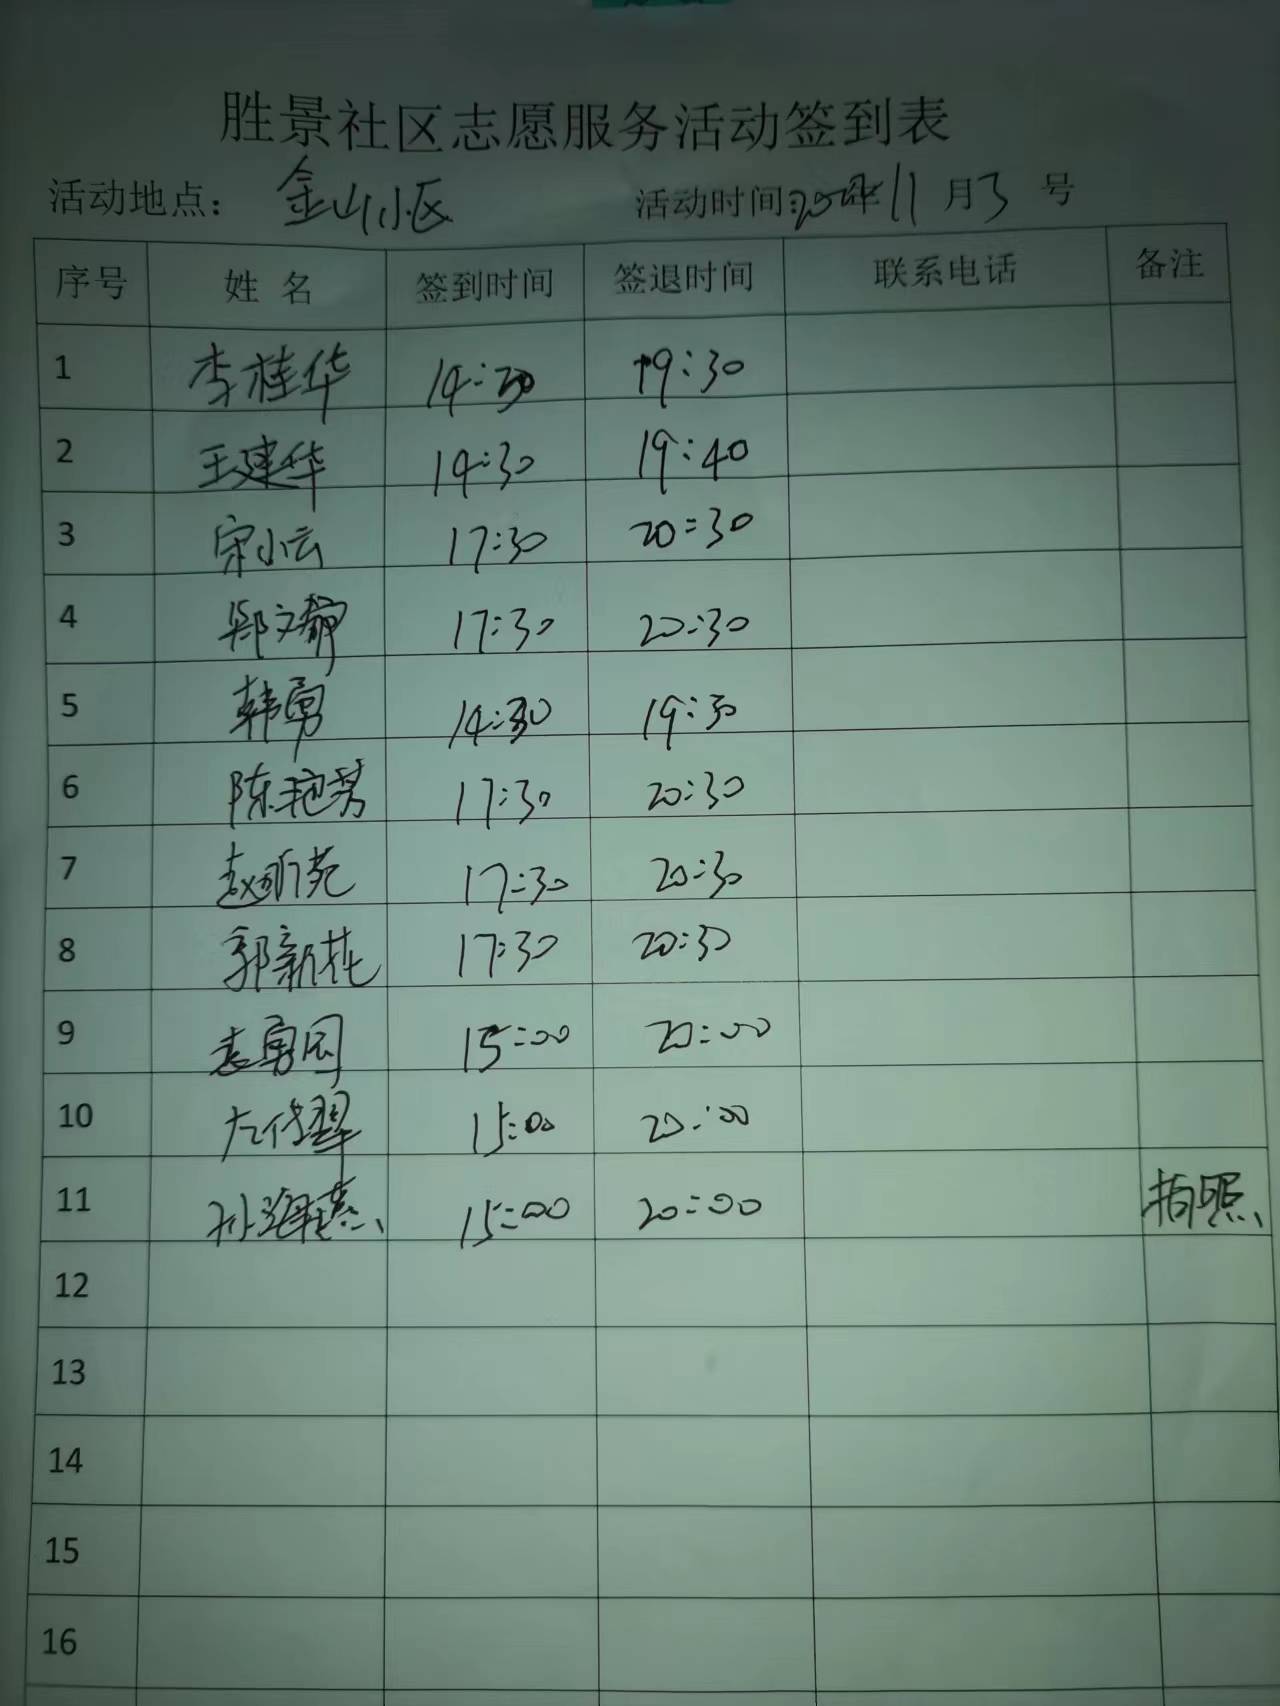 胜景社区志愿服务活动签到表
活动地点： 金山小区 活动时间: 年11月3号
序号 姓 名 签到时间 签退时间 联系电话 备注
1 李桂华 14:30 19:30
2 王建华 14:30 19:40
3 宋小云 17:30 20:30
4 郑文静 17:30 20:30
5 韩勇 14:30 19:30
6 陈艳芳 17:30 20:30
7 赵昕苑 17:30 20:30
8 郭新花 17:30 20:30
9 袁勇国 15:00 20:00
10 15:00 20:00
11 15:00 20:00 拍照
12
13
14
15
16